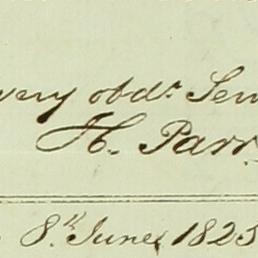 very obdt. Serv
H. Parr
8th June, 1825